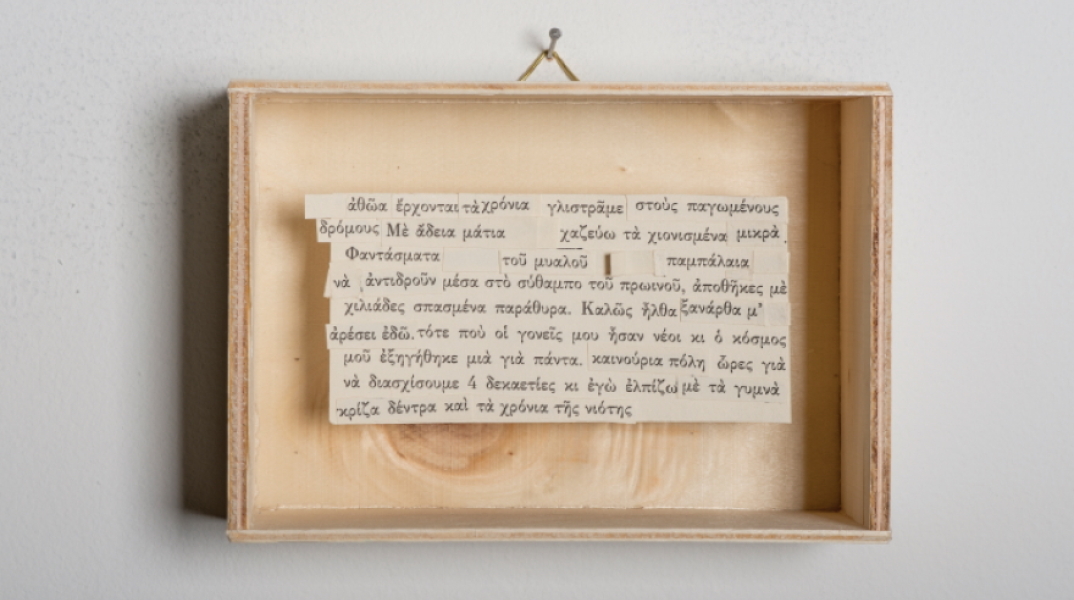 ἀθῶα ἔρχονται τὰ χρόνια γλιστρᾶμε στοὺς παγωμένους
δρόμους Μὲ ἄδεια μάτια χαζεύω τὰ χιονισμένα μικρὰ.
Φαντάσματα τοῦ μυαλοῦ παμπάλαια
νὰ ἀντιδροῦν μέσα στὸ σύθαμπο τοῦ πρωινοῦ, ἀποθῆκες μὲ
χιλιάδες σπασμένα παράθυρα. Καλῶς ἦλθα ξανάρθα μ'
ἀρέσει ἐδῶ. τότε ποὺ οἱ γονεῖς μου ἦσαν νέοι κι ὁ κόσμος
μοῦ ἐξηγήθηκε μιὰ γιὰ πάντα. καινούρια πόλη ὧρες γιὰ
νὰ διασχίσουμε 4 δεκαετίες κι ἐγὼ ἐλπίζω μὲ τὰ γυμνὰ
γκρίζα δέντρα καὶ τὰ χρόνια τῆς νιότης